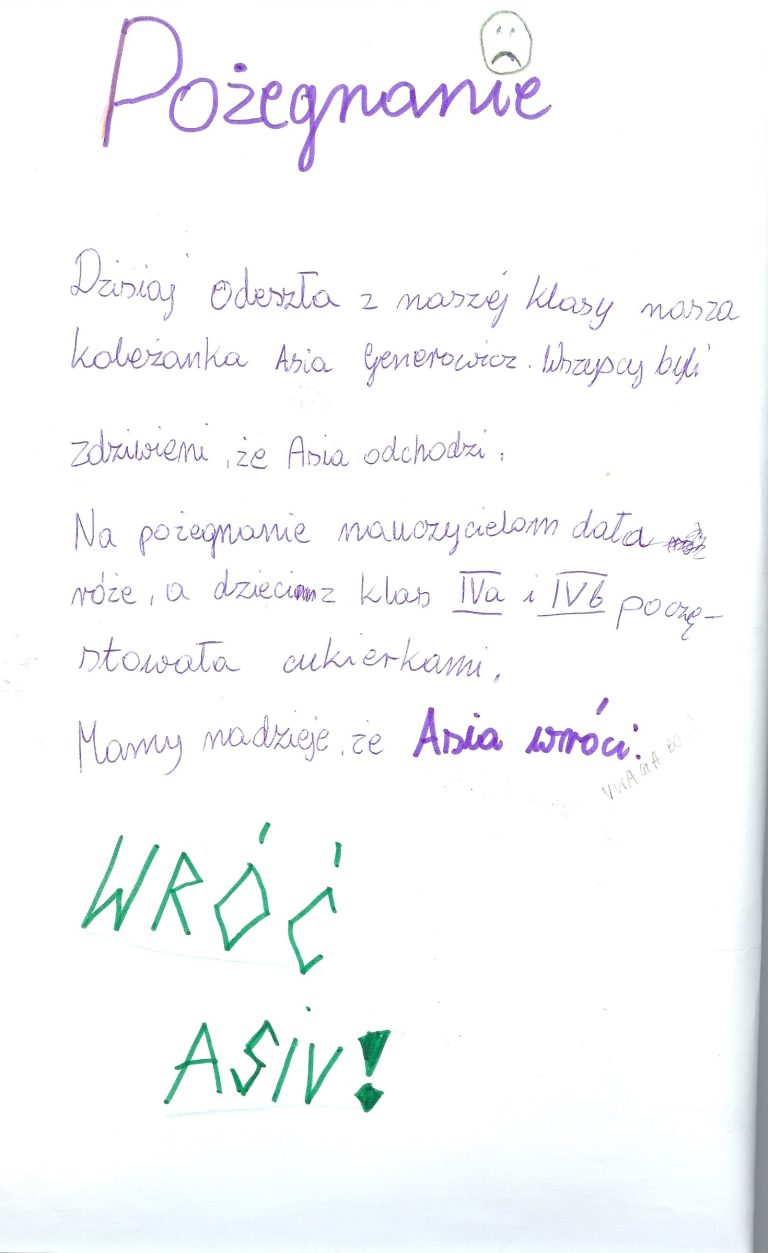 Pożegnanie
Dzisiaj odeszła z naszej klasy nasza
koleżanka Asia Generowicz. Wszyscy byli
zdziwieni, że Asia odchodzi.
Na pożegnanie nauczycielom dała
róże, a dzieciom z klas IVa i IVb poczę-
stowała cukierkami.
Mamy nadzieje, że Asia wróci.
UWAGA
WRÓĆ
ASIU!